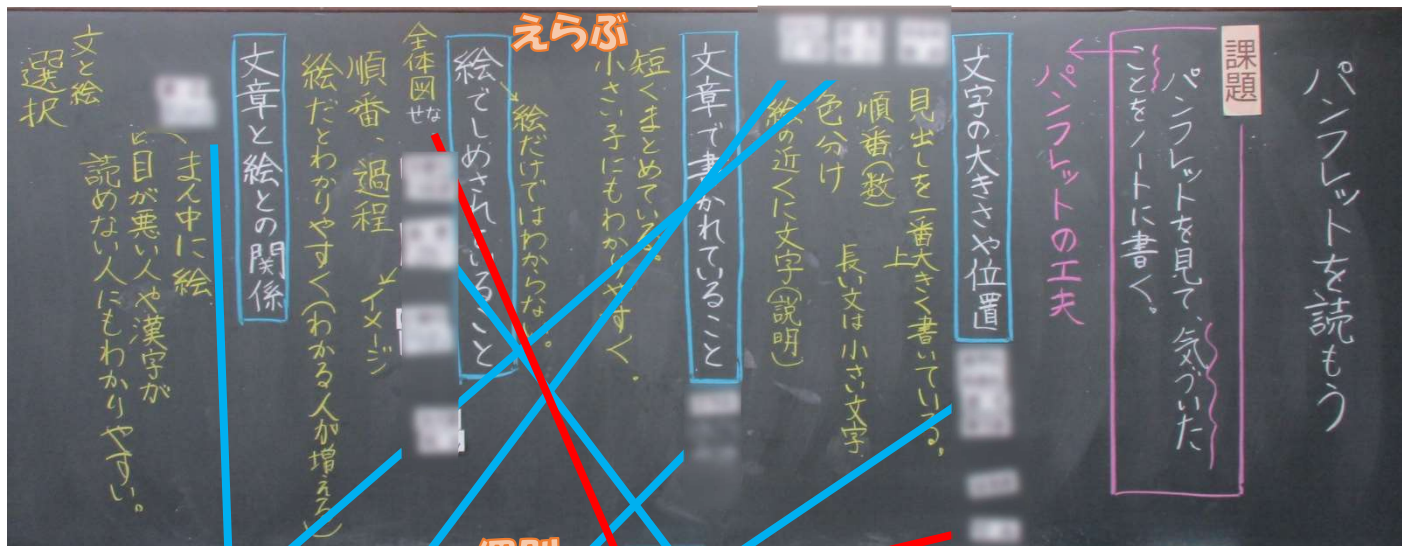 パンフレットを読もう
課題
パンフレットを見て、気づいた
ことをノートに書く。
パンフレットの工夫
文字の大きさや位置
見出しを一番大きく書いている。
上
順番(数)
長い文は小さい文字
色分け
絵の近くに文字(説明)
文章で書かれていること
短くまとめている。
小さい子にもわかりやすく。
えらぶ
絵だけではわからない。
絵でしめされていること
全体図
せな
順番、過程
イメージ
絵だとわかりやすく(わかる人が増える)
文章と絵との関係
まん中に絵
目が悪い人や漢字が
読めない人にもわかりやすい。
文と絵
選択